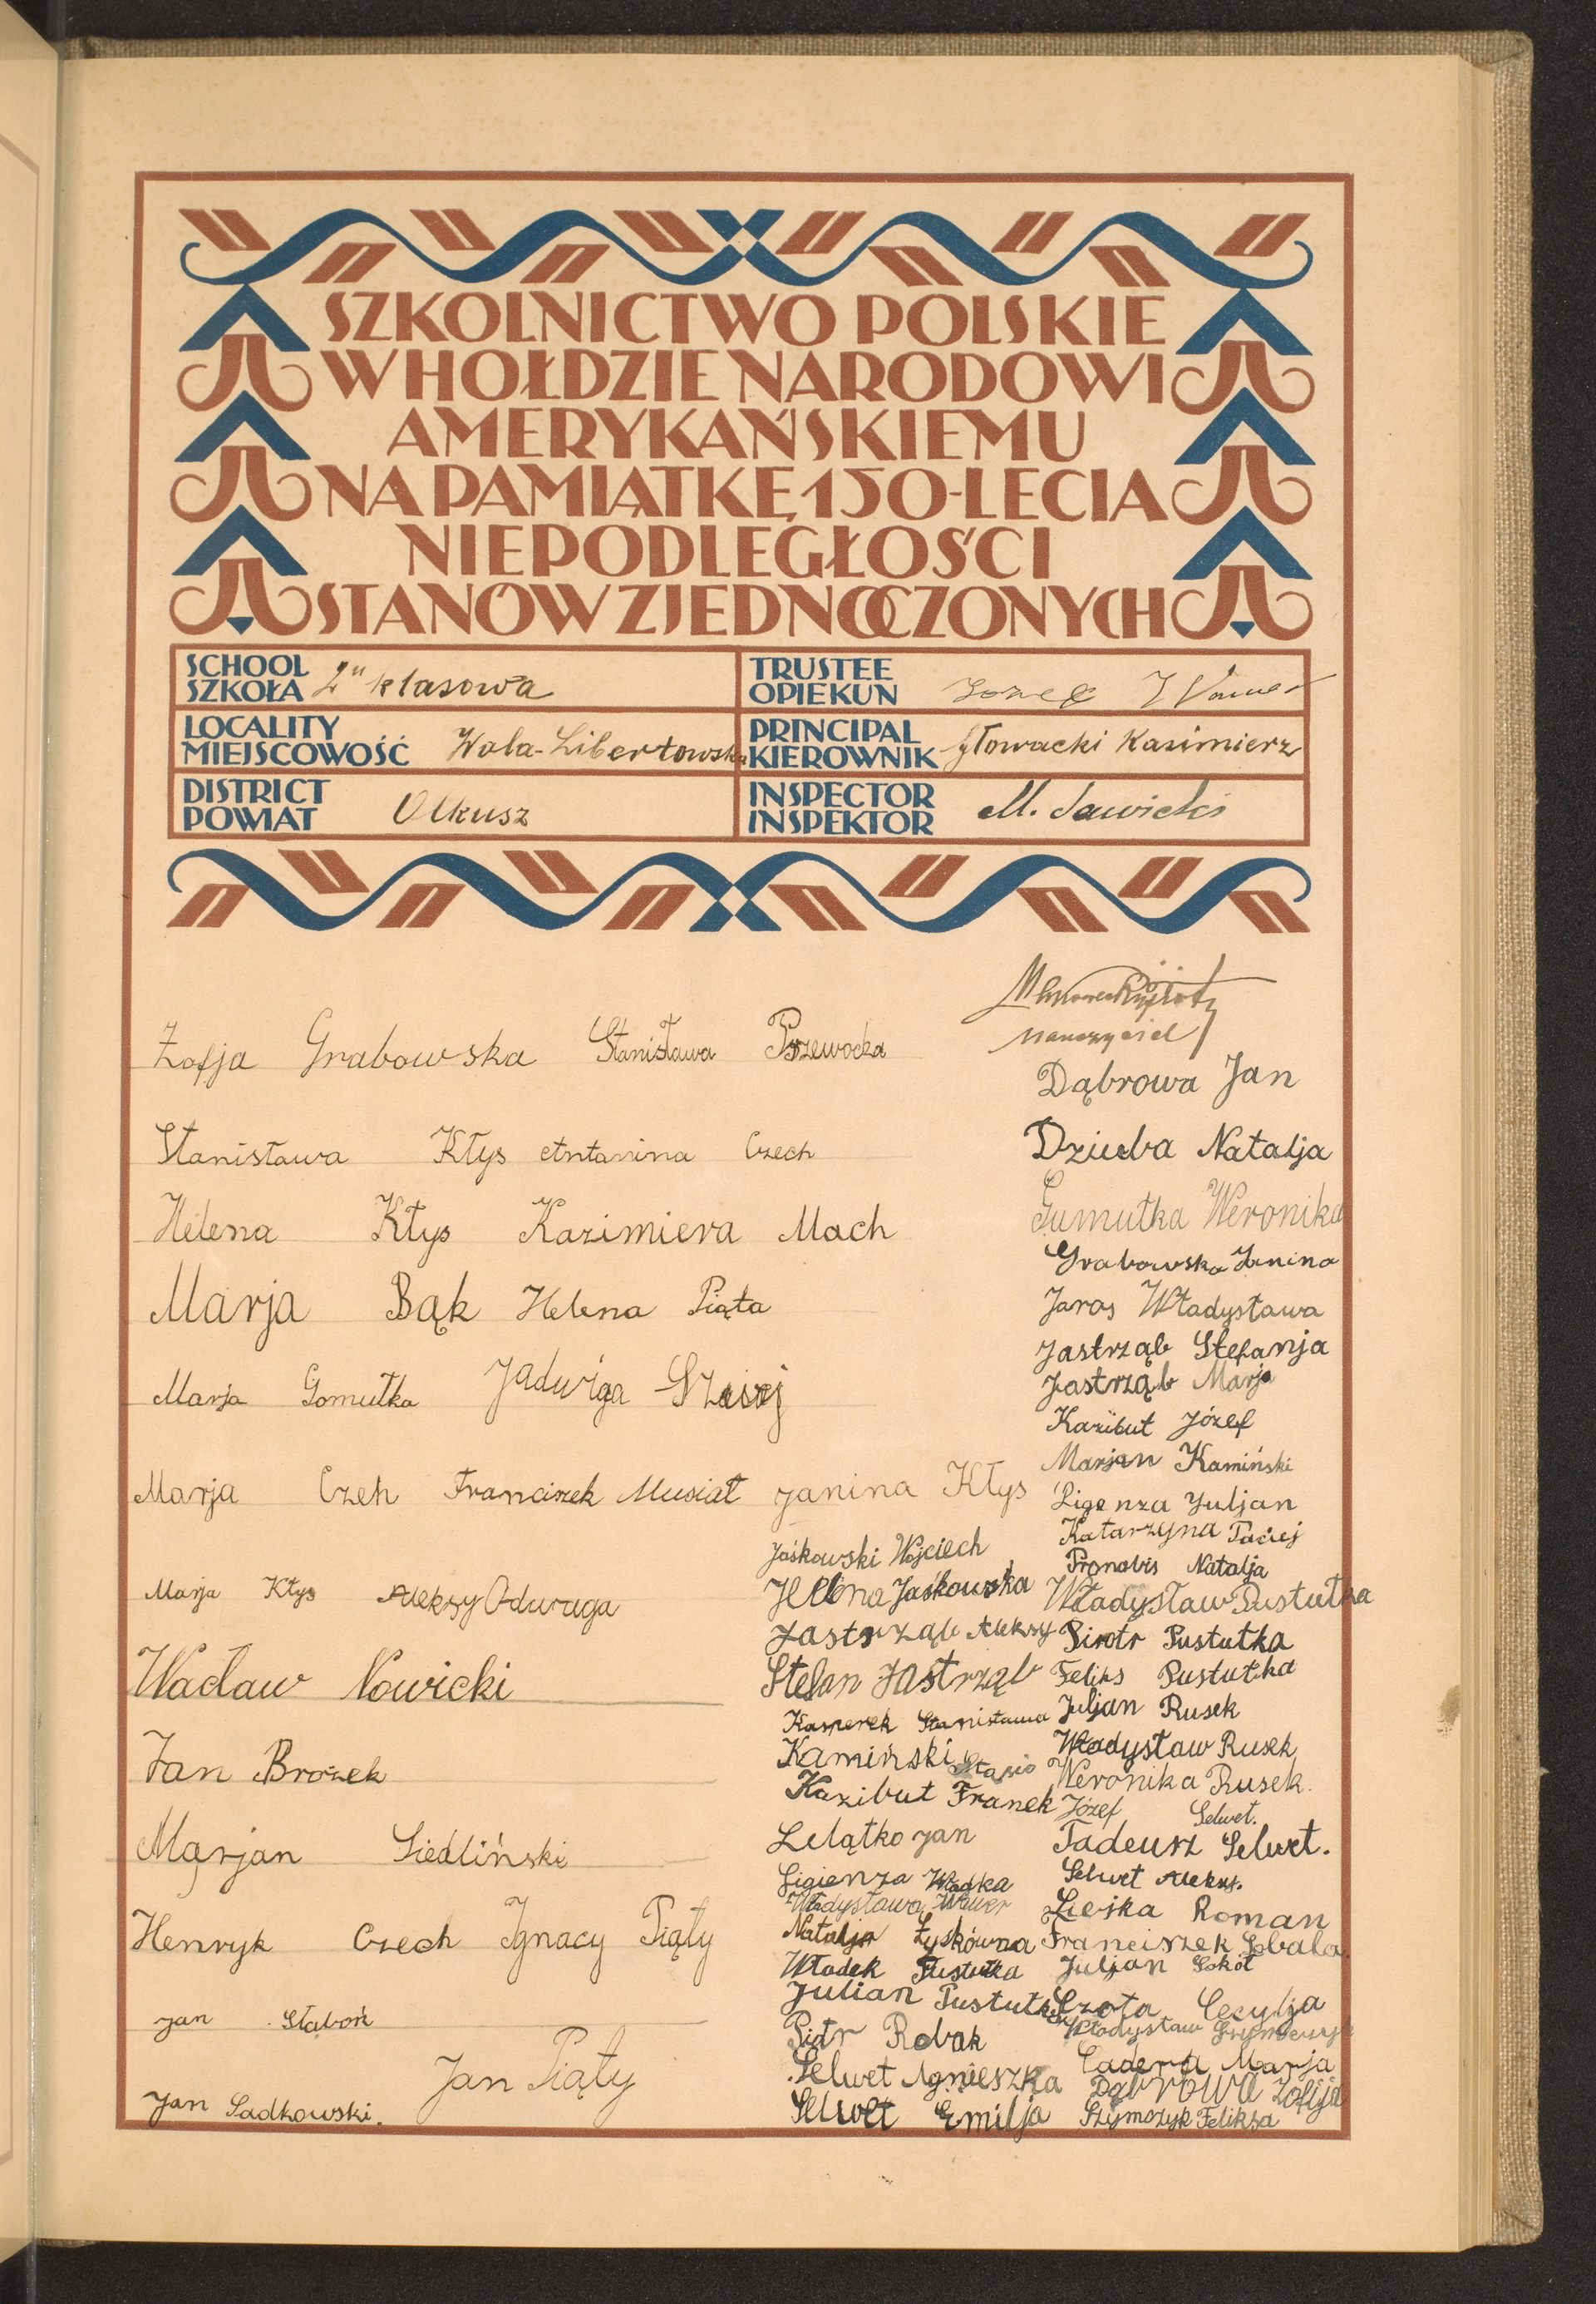 SZKOLNICTWO POLSKIE
W HOŁDZIE NARODOWI
AMERYKAŃSKIEMU
NA PAMIĄTKĘ 150-LECIA
NIEPODLEGŁOŚCI
STANÓW ZJEDNOCZONYCH
SCHOOL
SZKOŁA
klasowa
TRUSTEE
OPIEKUN
LOCALITY
MIEJSCOWOŚĆ
Wola-Libertowska
PRINCIPAL
KIEROWNIK
Głowacki Kazimierz
DISTRICT
POWIAT
Olkusz
INSPECTOR
INSPEKTOR
M. Sawicki
Zofja Grabowska Stanisława
Stanisława Kłys Antanina Czech
Helena Kłys Kazimiera Mach
Marja Bąk Helena Piąta
Marja Gomułka Jadwiga
Marja Czeh Franciszek Musiał Janina Kłys
Marja Kłys Aleksy Odwaga
Wacław Nowicki
Jan Brożek
Marjan Siedliński
Henryk Czech Ignacy Piąty
Jan Słaboń
Jan Piąty
Jan Sadkowski.
Jaśkowski Wojciech
Helena Jaśkowska
Jastrząb Aleksy
Stefan Jastrząb
Kasperek Stanisława
Kamiński Stasio
Kazibut Franek
Lelątko Jan
Ligienza Władka
Władysława Wawer
Natalja Łyskówna
Władek Pustułka
Julian Pustułka
Piotr Robak
Selwet Agnieszka
Selwet Emilja
nauczyciel
Dąbrowa Jan
Dziuba Natalja
Gumułka Weronika
Grabowska Janina
Jaros Władysława
Jastrząb Stefanja
Jastrząb Marja
Kazibut Józef
Marjan Kamiński
Ligenza Juljan
Katarzyna Paciej
Pronobis Natalja
Władysław Pustułka
Piotr Pustułka
Feliks Pustułka
Juljan Rusek
Władysław Rusek
Weronika Rusek.
Józef Selwet.
Tadeusz Selwet.
Selwet Aleks.
Roman
Franciszek Sobala
Juljan Sokół
Szota Cecylja
Władysław
Cadera Marja
Dąbrowa Zofija
Szymczyk Feliksa